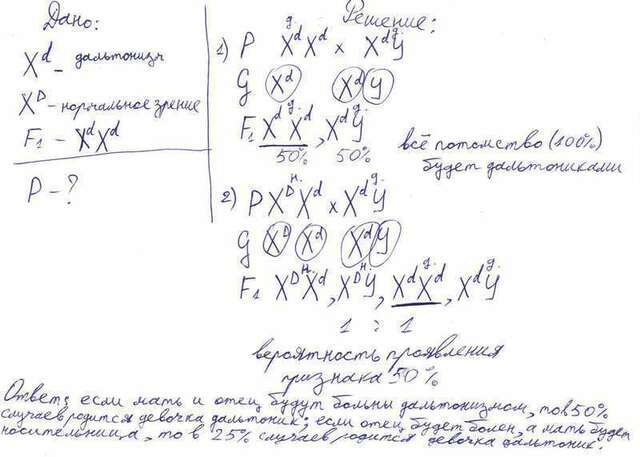 Дано:
X^d - дальтонизм
X^D - нормальное зрение
F₁ - X^d X^d
P - ?
Решение:
д. д.
1) P X^d X^d x X^d Y
G X^d X^d Y
д. д.
F₁ X^d X^d, X^d Y
50% 50%
всё потомство (100%)
будет дальтониками
н. д.
2) P X^D X^d x X^d Y
G X^D X^d X^d Y
н. н. д. д.
F₁ X^D X^d, X^D Y, X^d X^d, X^d Y
1 : 1
вероятность проявления
признака 50%
Ответ: если мать и отец будут больны дальтонизмом, то в 50%
случаев родится девочка дальтоник; если отец будет болен, а мать будет
носительница, то в 25% случаев родится девочка дальтоник.